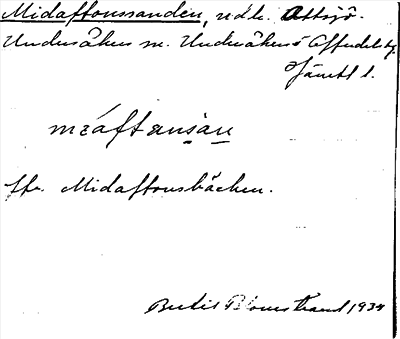 Midaftonssanden, udde. Ottsjö.
Undersåkers sn. Undersåkers o Offerdals tg.
Jämtl l.
mı́aftansa̱n
Jfr. Midaftonsbäcken.
Bertil Blomstrand 1934